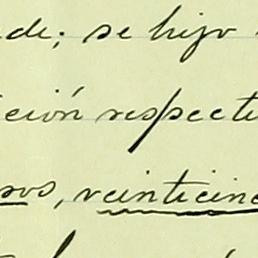 de; se hizo
ción respecti
ros, veinticinc